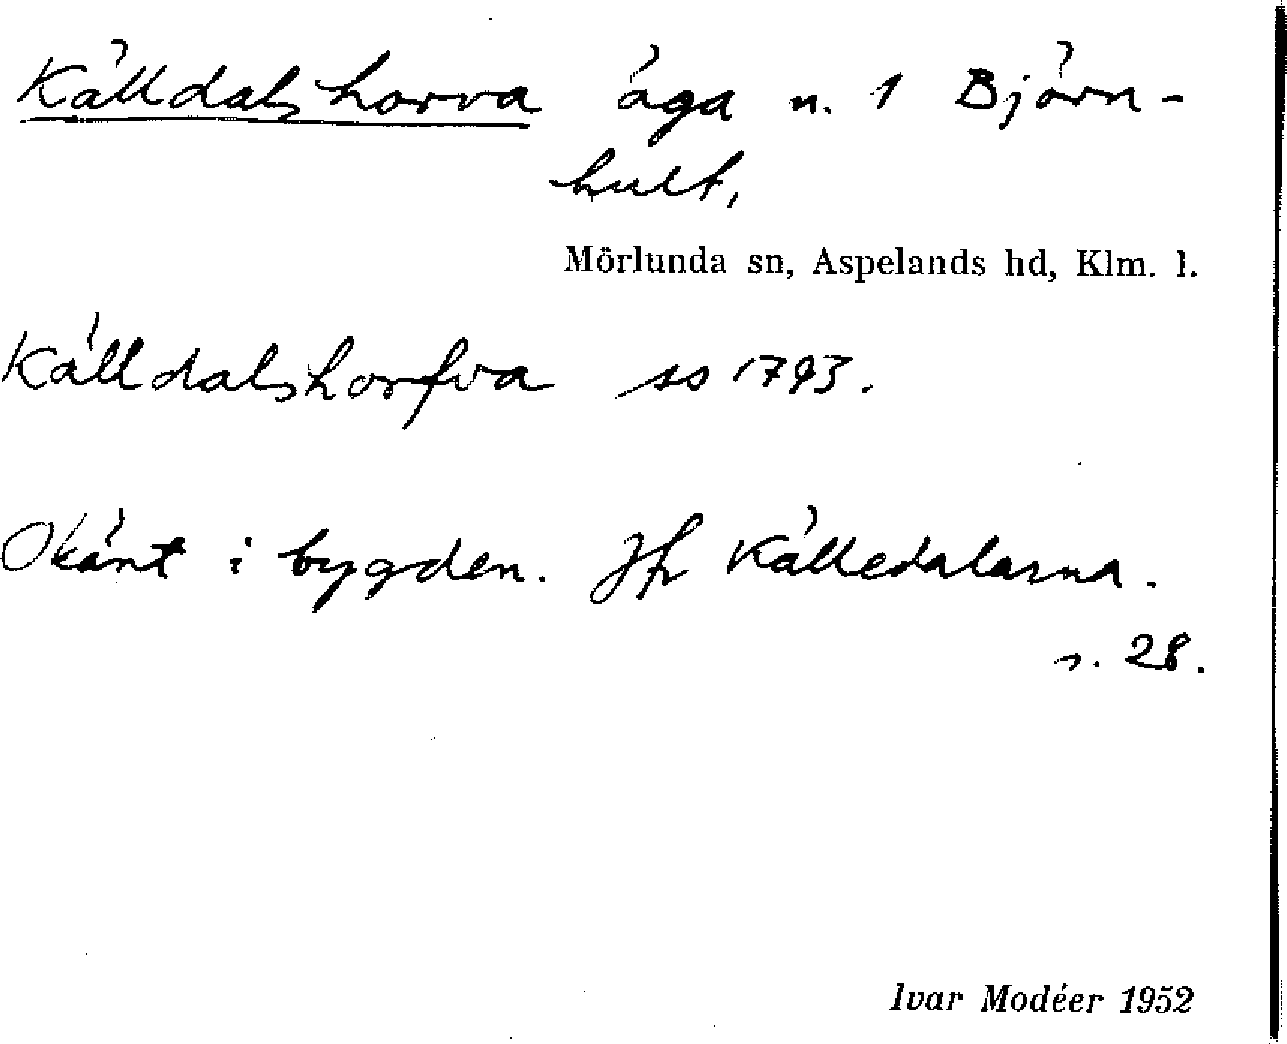 Källdalshorva äga n. 1 Björn-
hult,
Mörlunda sn, Aspelands hd, Klm. l.
Källdalshorfva ss 1793.
Okänt i bygden. Jfr Källedalarna.
s. 28.
Ivar Modéer 1952